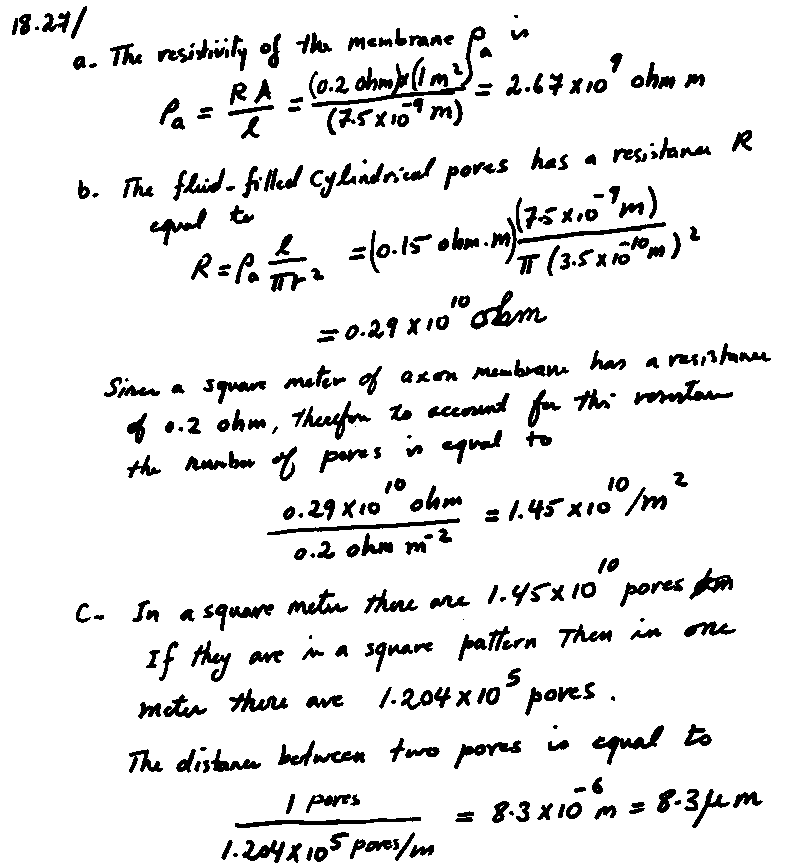 18.27/
a. The resistivity of the membrane ρa is
ρa = RA/ℓ = (0.2 ohm)x(1 m²)/(7.5 x 10⁻⁹ m) = 2.67 x 10⁹ ohm m
b. The fluid-filled Cylindrical pores has a resistance R
equal to
R = ρa ℓ/πr² = (0.15 ohm.m) (7.5 x 10⁻⁹ m)/π (3.5 x 10⁻¹⁰ m)²
= 0.29 x 10¹⁰ ohm
Since a square meter of axon membrane has a resistance
of 0.2 ohm, therefore to account for this resistance
the number of pores is equal to
0.29 x 10¹⁰ ohm/0.2 ohm m⁻² = 1.45 x 10¹⁰/m²
C- In a square meter there are 1.45 x 10¹⁰ pores
If they are in a square pattern Then in one
meter there are 1.204 x 10⁵ pores.
The distance between two pores is equal to
1 pores/1.204 x 10⁵ pores/m = 8.3 x 10⁻⁶ m = 8.3 μm